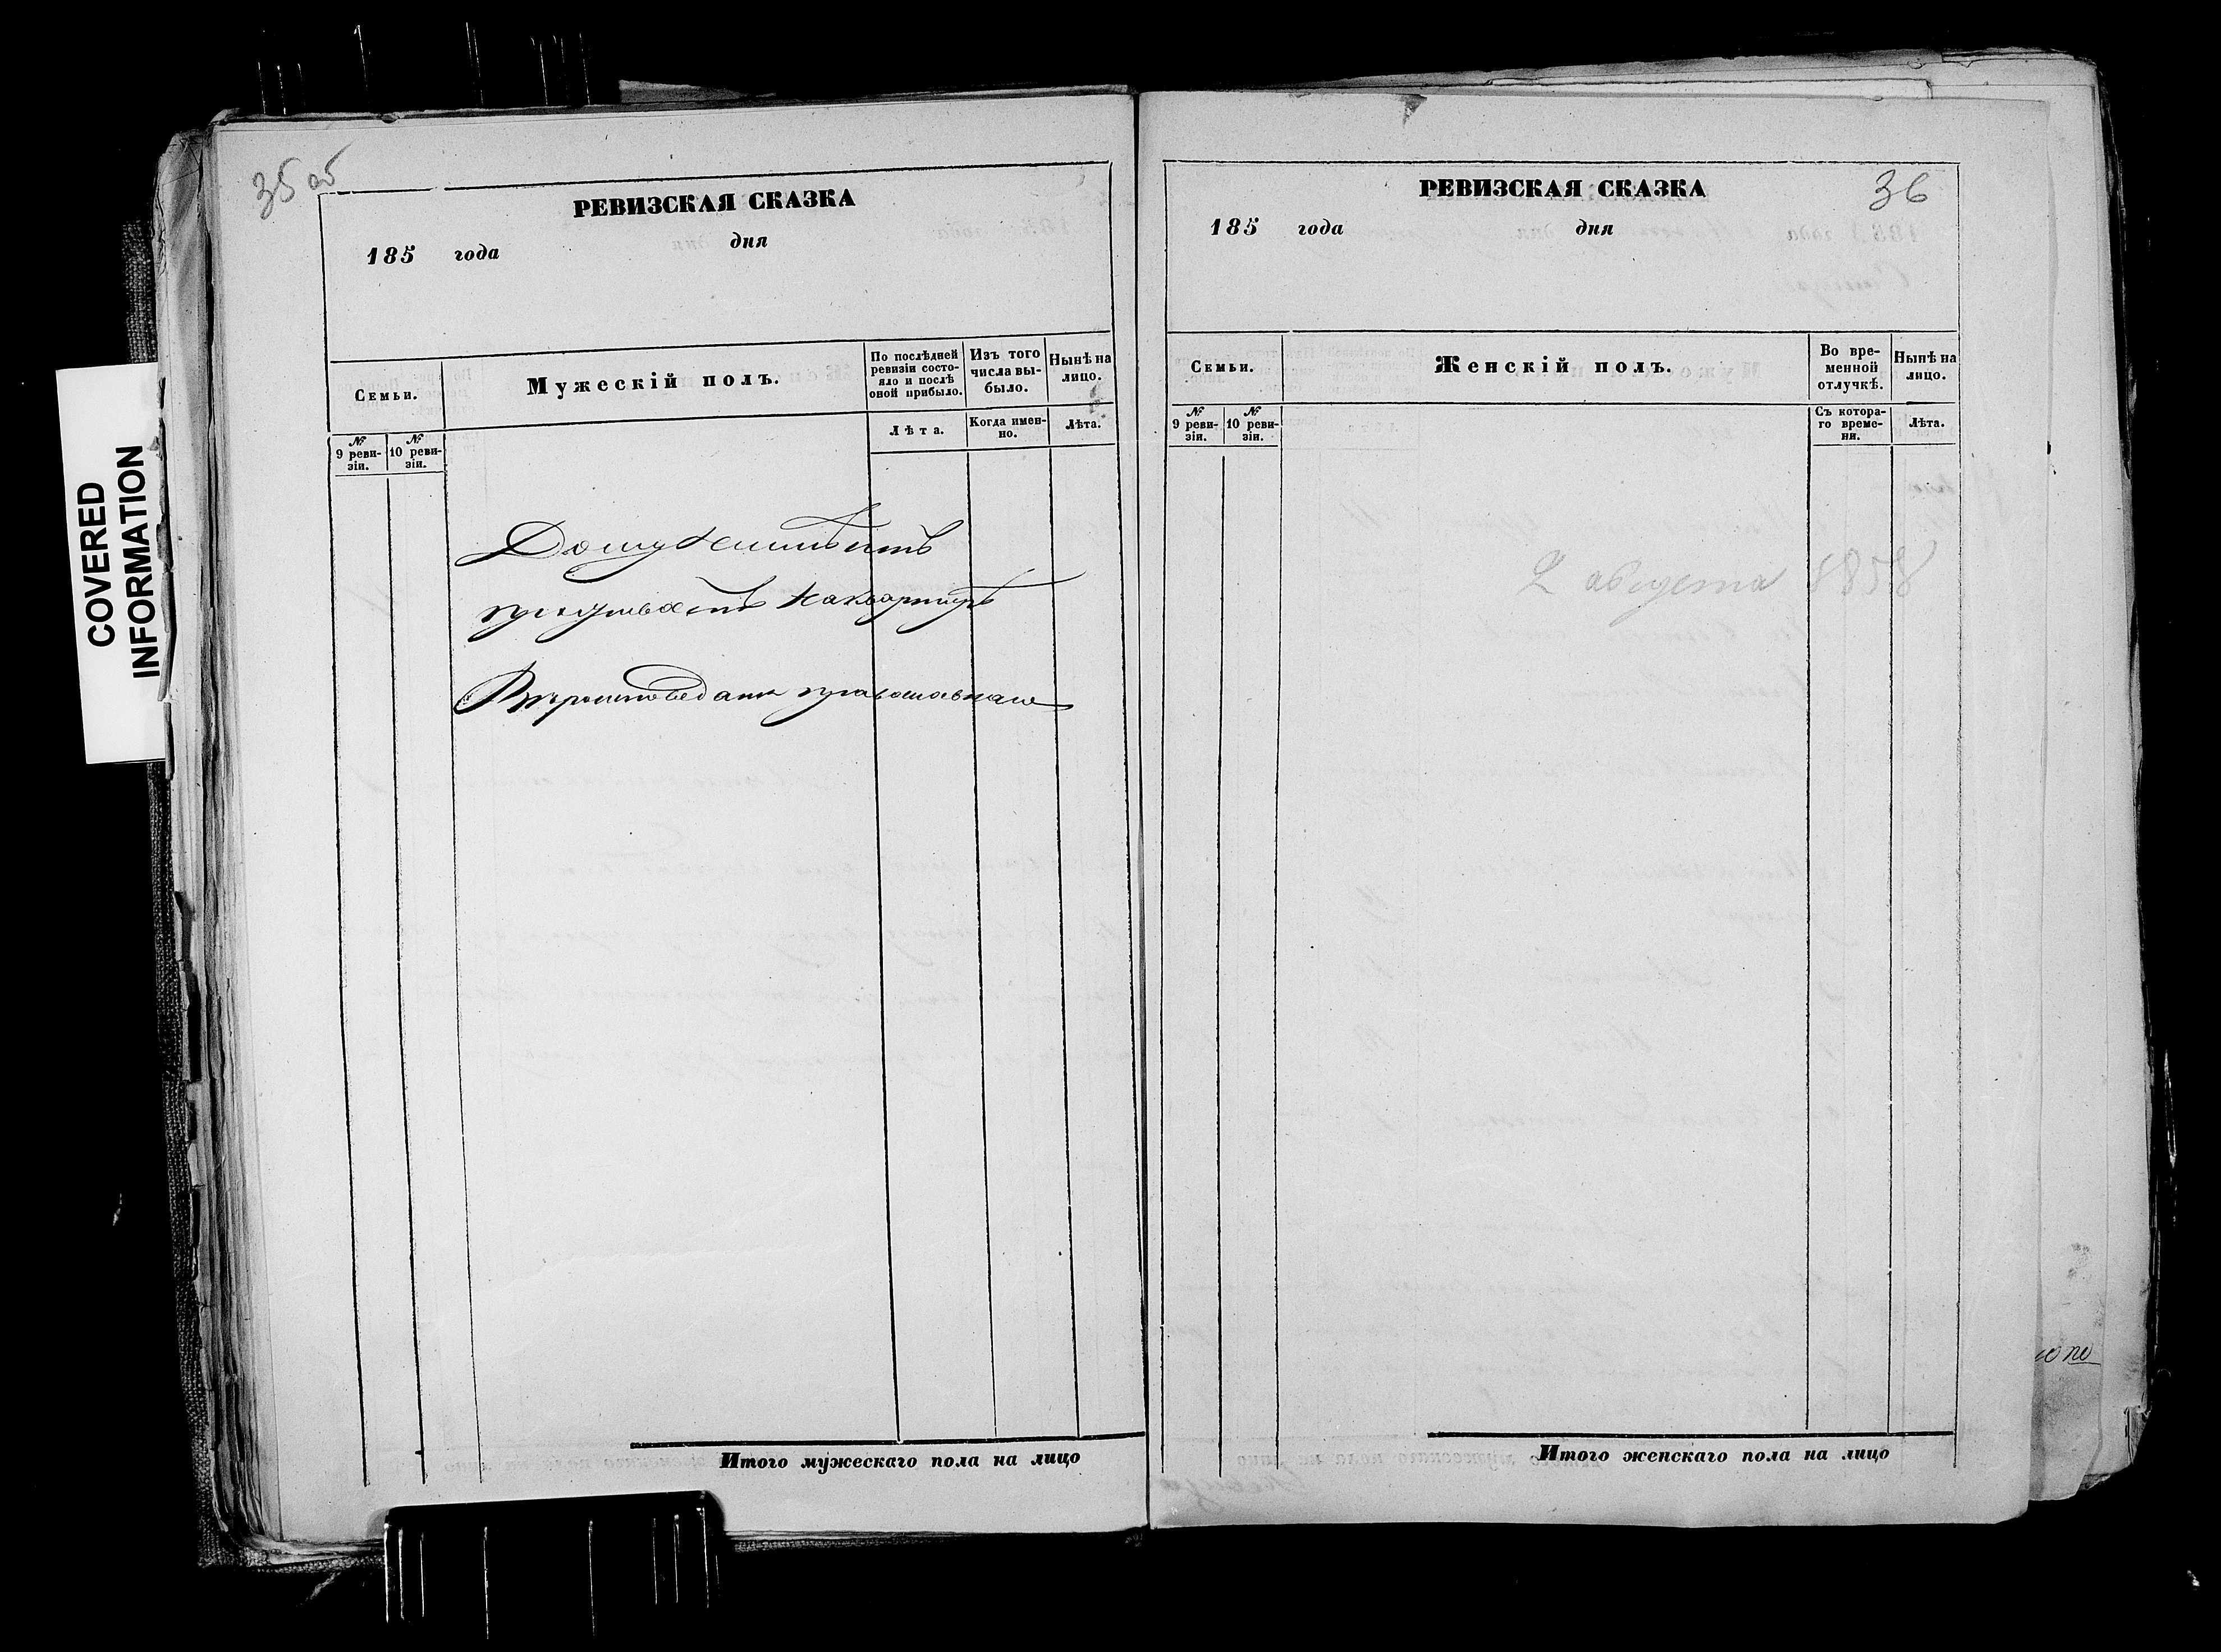 COVERED
INFORMATION
35 об
РЕВИЗСКАЯ СКАЗКА
185 года дня
Семьи.
Мужескій полъ.
По послѣдней ревизіи состояло и послѣ оной прибыло.
Изъ того числа выбыло.
Нынѣ на лицо.
№ 9 ревизіи.
№ 10 ревизіи.
Лѣта.
Когда именно.
Лѣта.
Дому неимѣетъ
проживаетъ наквартирѣ
Вѣроисповеданія православнаго
Итого мужескаго пола на лицо
36
РЕВИЗСКАЯ СКАЗКА
185 года дня
Семьи.
Женскій полъ.
Во временной отлучкѣ.
Нынѣ на лицо.
№ 9 ревизіи.
№ 10 ревизіи.
Съ котораго времени.
Лѣта.
2 августа 1858
Итого женскаго пола на лицо